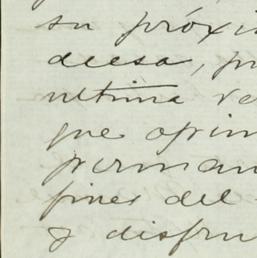 su próxi
deesa, p
ultima ve
que opin
perman
fines del
y disfru